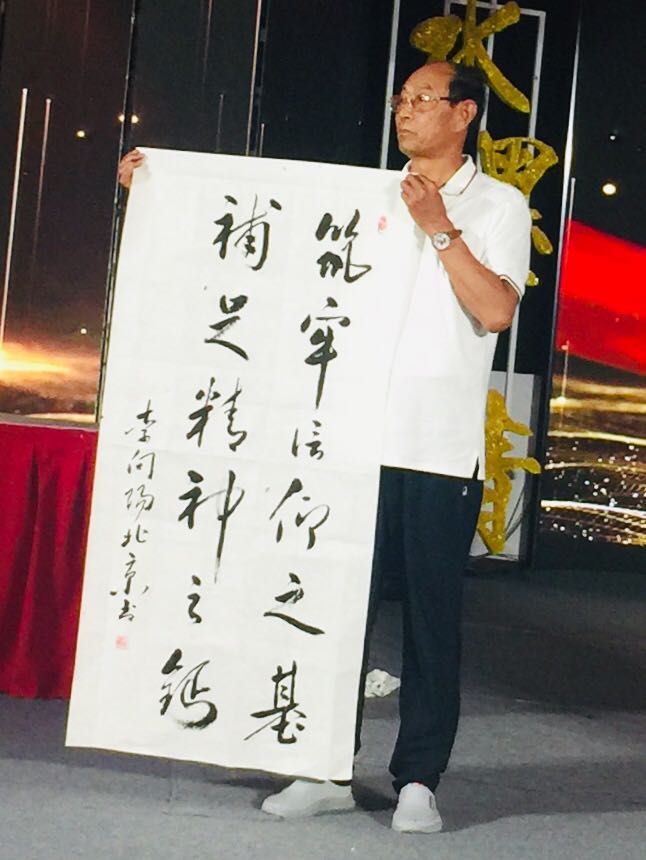 筑牢信仰之基
补足精神之钙
李向阳北京书
水墨